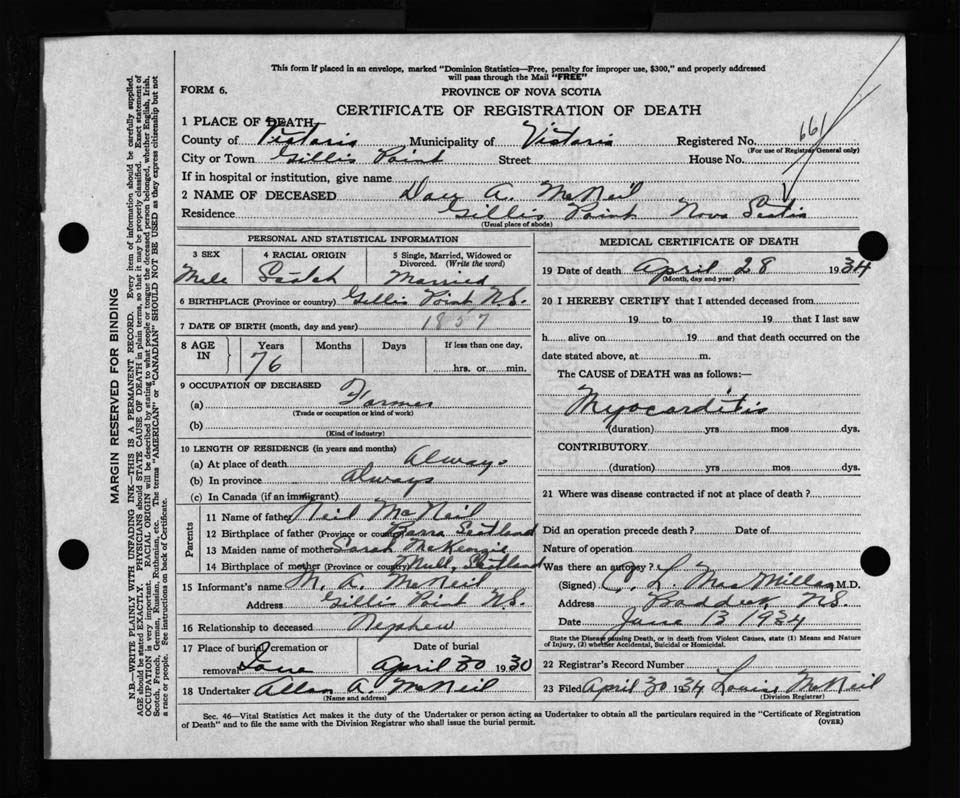 This form if placed in an envelope, marked "Dominion Statistics—Free, penalty for improper use, $300," and properly addressed
will pass through the Mail "FREE"
FORM 6.
PROVINCE OF NOVA SCOTIA
CERTIFICATE OF REGISTRATION OF DEATH
1 PLACE OF DEATH
County of Victoria Municipality of Victoria Registered No. 661
(For use of Registrar General only)
City or Town Gillis Point Street House No.
If in hospital or institution, give name
2 NAME OF DECEASED A. McNeil
Residence Gillis Point Nova Scotia
(Usual place of abode)
PERSONAL AND STATISTICAL INFORMATION
3 SEX 4 RACIAL ORIGIN 5 Single, Married, Widowed or
Divorced. (Write the word)
Male Scotch Married
6 BIRTHPLACE (Province or country) Gillis Point N.S.
7 DATE OF BIRTH (month, day and year) 1857
8 AGE IN Years Months Days If less than one day,
76 hrs. or min.
9 OCCUPATION OF DECEASED
(a) Farmer
(Trade or occupation or kind of work)
(b)
(Kind of industry)
10 LENGTH OF RESIDENCE (in years and months)
(a) At place of death Always
(b) In province Always
(c) In Canada (if an immigrant)
Parents
11 Name of father Neil McNeil
12 Birthplace of father (Province or country) Barra Scotland
13 Maiden name of mother Sarah McKenzie
14 Birthplace of mother (Province or country) Mull, Scotland
15 Informant's name M. A. McNeil
Address Gillis Point N.S.
16 Relationship to deceased Nephew
17 Place of burial, cremation or Date of burial
removal Iona April 30 1930
18 Undertaker Allan A. McNeil
(Name and address)
MEDICAL CERTIFICATE OF DEATH
19 Date of death April 28 1934
(Month, day and year)
20 I HEREBY CERTIFY that I attended deceased from
19 to 19 that I last saw
h alive on 19 and that death occurred on the
date stated above, at m.
The CAUSE of DEATH was as follows:—
Myocarditis
(duration) yrs mos dys.
CONTRIBUTORY
(duration) yrs mos dys.
21 Where was disease contracted if not at place of death?
Did an operation precede death? Date of
Nature of operation
Was there an autopsy?
(Signed) C. L. MacMillan, M.D.
Address Baddeck, N.S.
Date June 13 1934
State the Disease causing Death, or in death from Violent Causes, state (1) Means and Nature
of Injury, (2) whether Accidental, Suicidal or Homicidal.
22 Registrar's Record Number
23 Filed April 30 1934 Louis McNeil
(Division Registrar)
Sec. 46—Vital Statistics Act makes it the duty of the Undertaker or person acting as Undertaker to obtain all the particulars required in the "Certificate of Registration
of Death" and to file the same with the Division Registrar who shall issue the burial permit.
(OVER)
MARGIN RESERVED FOR BINDING
N.B.—WRITE PLAINLY WITH UNFADING INK—THIS IS A PERMANENT RECORD. Every item of information should be carefully supplied.
AGE should be stated EXACTLY. PHYSICIANS should STATE CAUSE OF DEATH in plain terms, so that it may be properly classified. Exact statement of
OCCUPATION is very important. RACIAL ORIGIN will be described by stating to what people or tongue the deceased person belonged, whether English, Irish,
Scotch, French, German, Russian, Ruthenian, etc. The terms "AMERICAN" or "CANADIAN" SHOULD NOT BE USED as they express citizenship but not
a race or people. See instructions on back of Certificate.